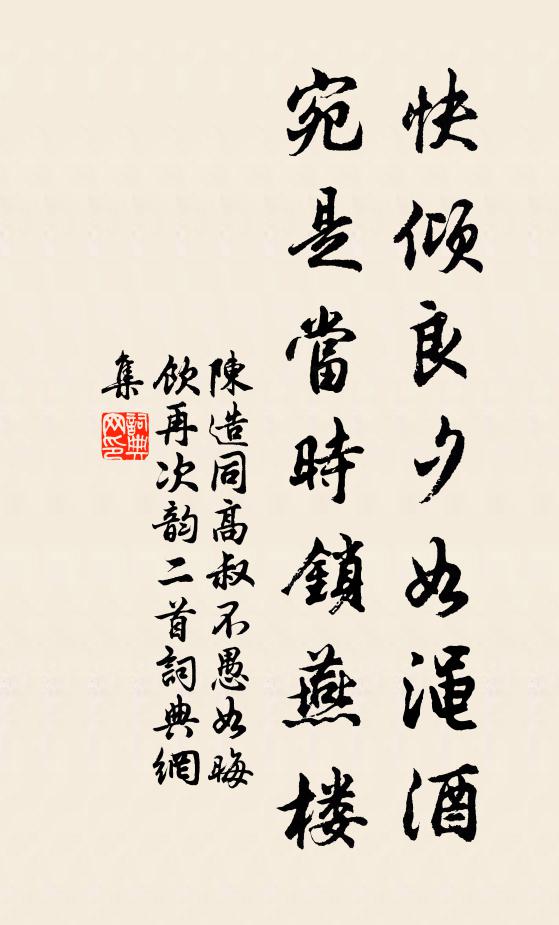 快倾良夕如渑酒
宛是當時鎖燕楼
陳造同高叔不愚如晦
飲再次韵二首詞典網
集
詞典网印